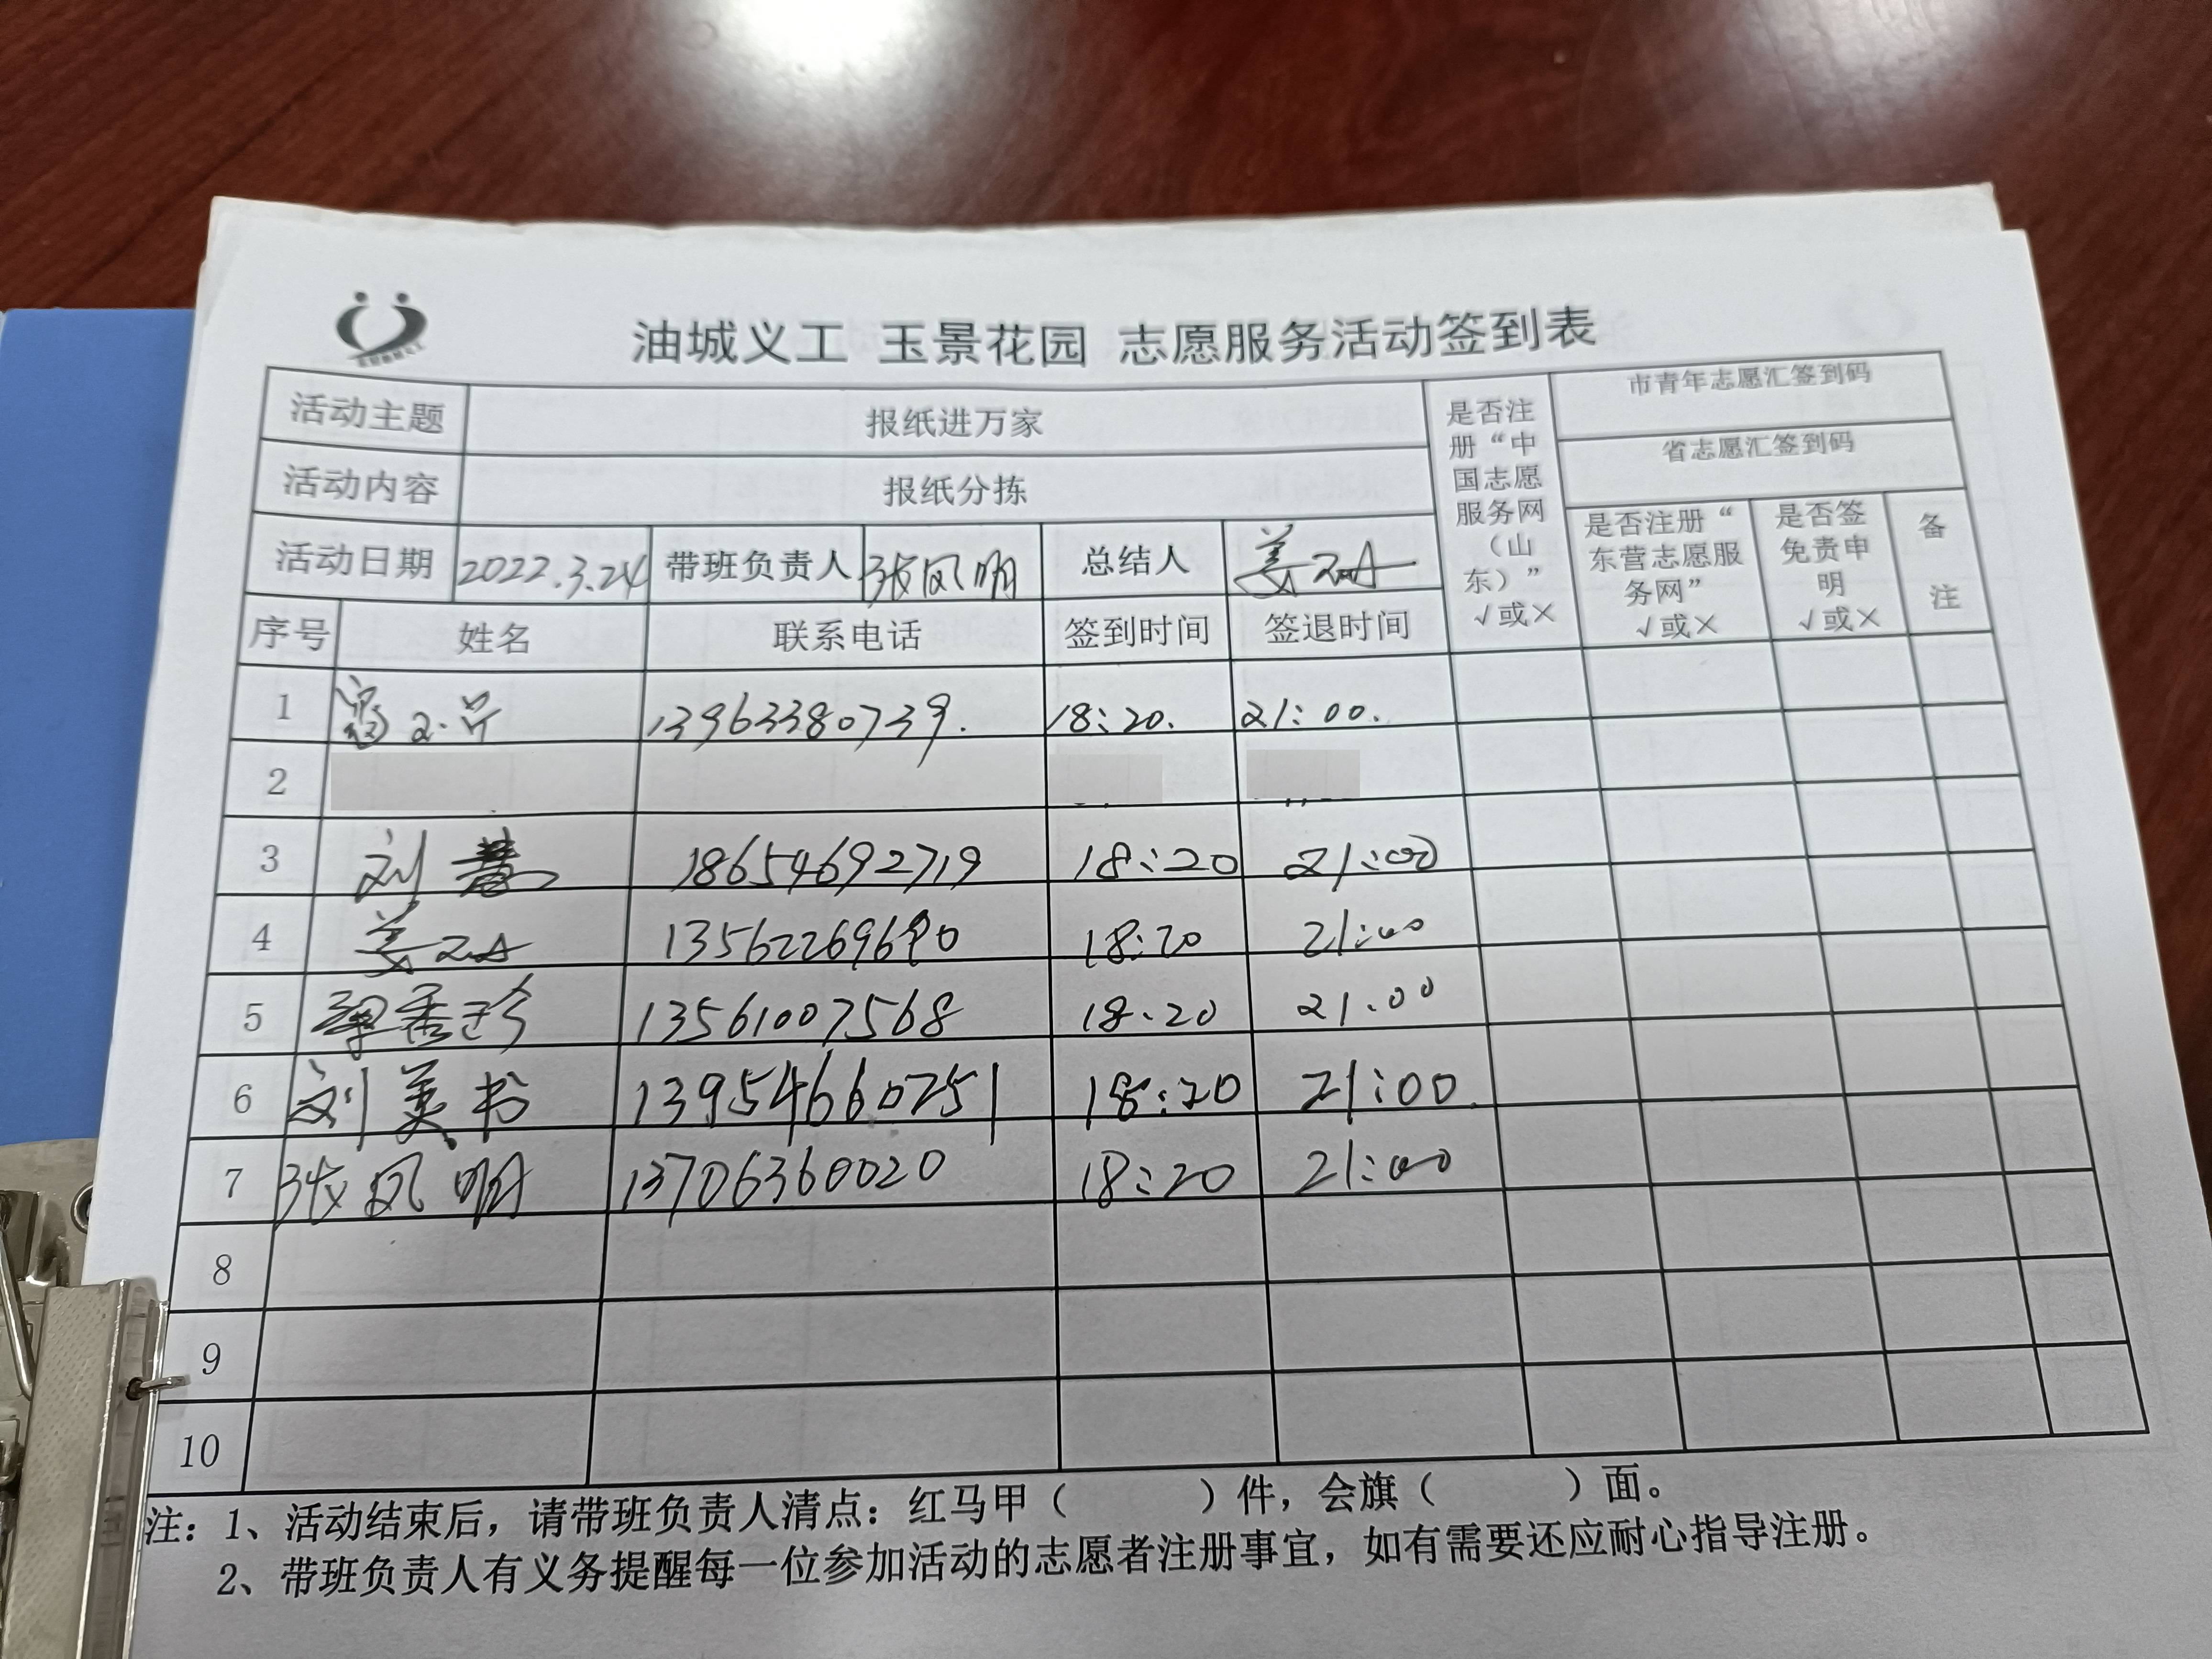 油城义工 玉景花园 志愿服务活动签到表
活动主题 报纸进万家
活动内容 报纸分拣
活动日期 2022.3.24 带班负责人 张凤明 总结人
是否注册“中国志愿服务网（山东）” √或×
市青年志愿汇签到码
省志愿汇签到码
是否注册“东营志愿服务网” √或×
是否签免责申明 √或×
备注
序号 姓名 联系电话 签到时间 签退时间
1 13963380739. 18:20. 21:00.
2
3 刘慧 18654692719 18:20 21:00
4 18:20 21:00
5 13561007568 18.20 21.00
6 刘美书 13954660751 18:20 21:00
7 张凤明 13706360020 18:20 21:00
8
9
10
注：1、活动结束后，请带班负责人清点：红马甲（ ）件，会旗（ ）面。
2、带班负责人有义务提醒每一位参加活动的志愿者注册事宜，如有需要还应耐心指导注册。